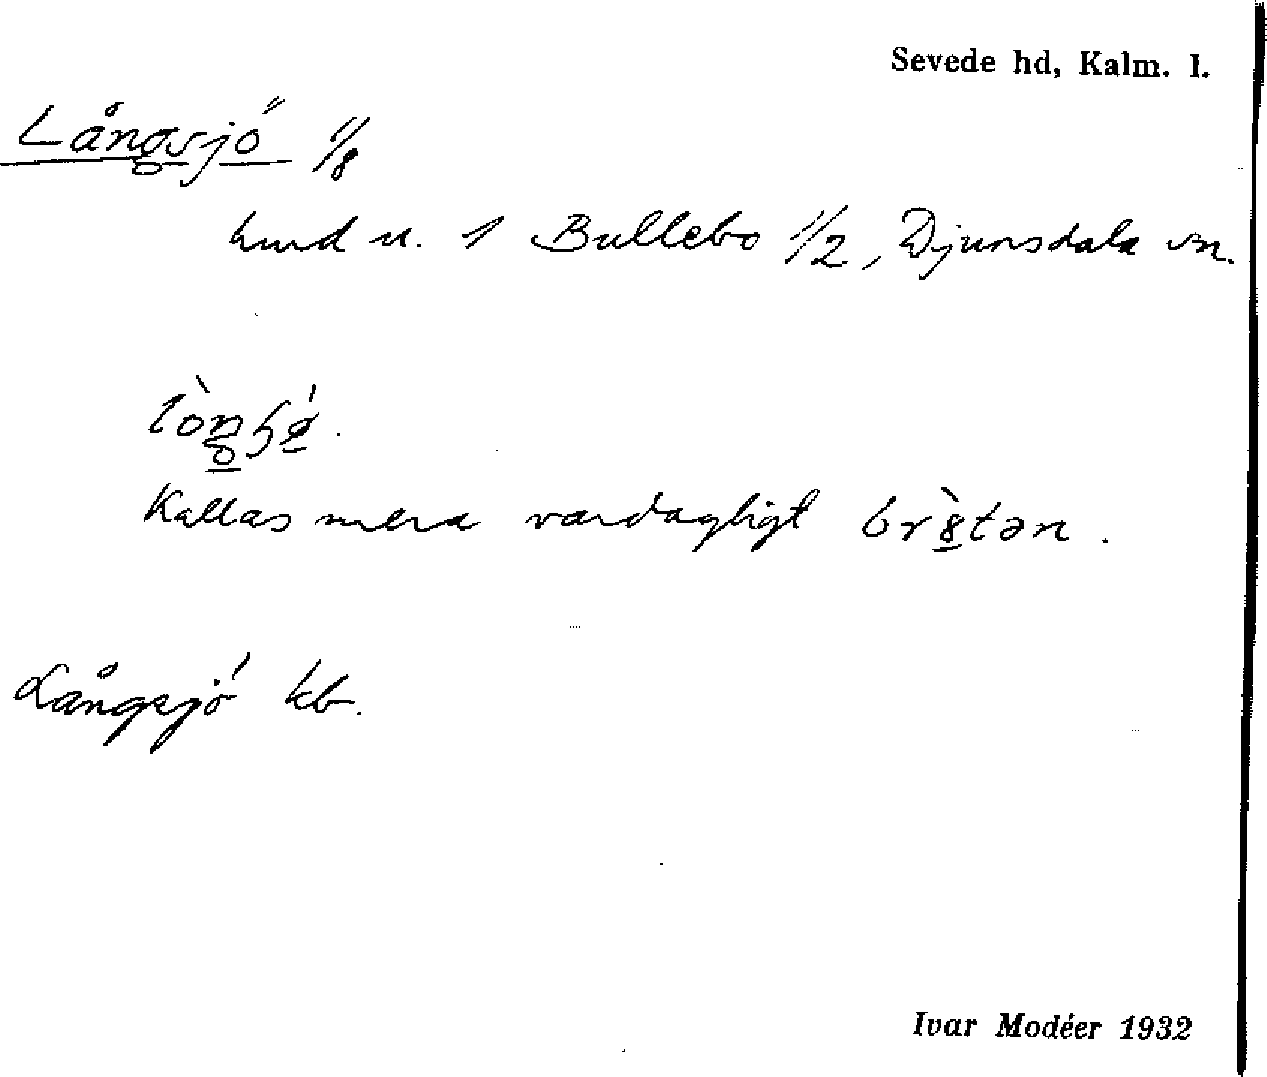 Sevede hd, Kalm. l.
Långsjö 1/8
hmd u. 1 Bullebo 1/2, Djursdala sn.
Kallas mera vardagligt
Långsjö kb.
Ivar Modéer 1932